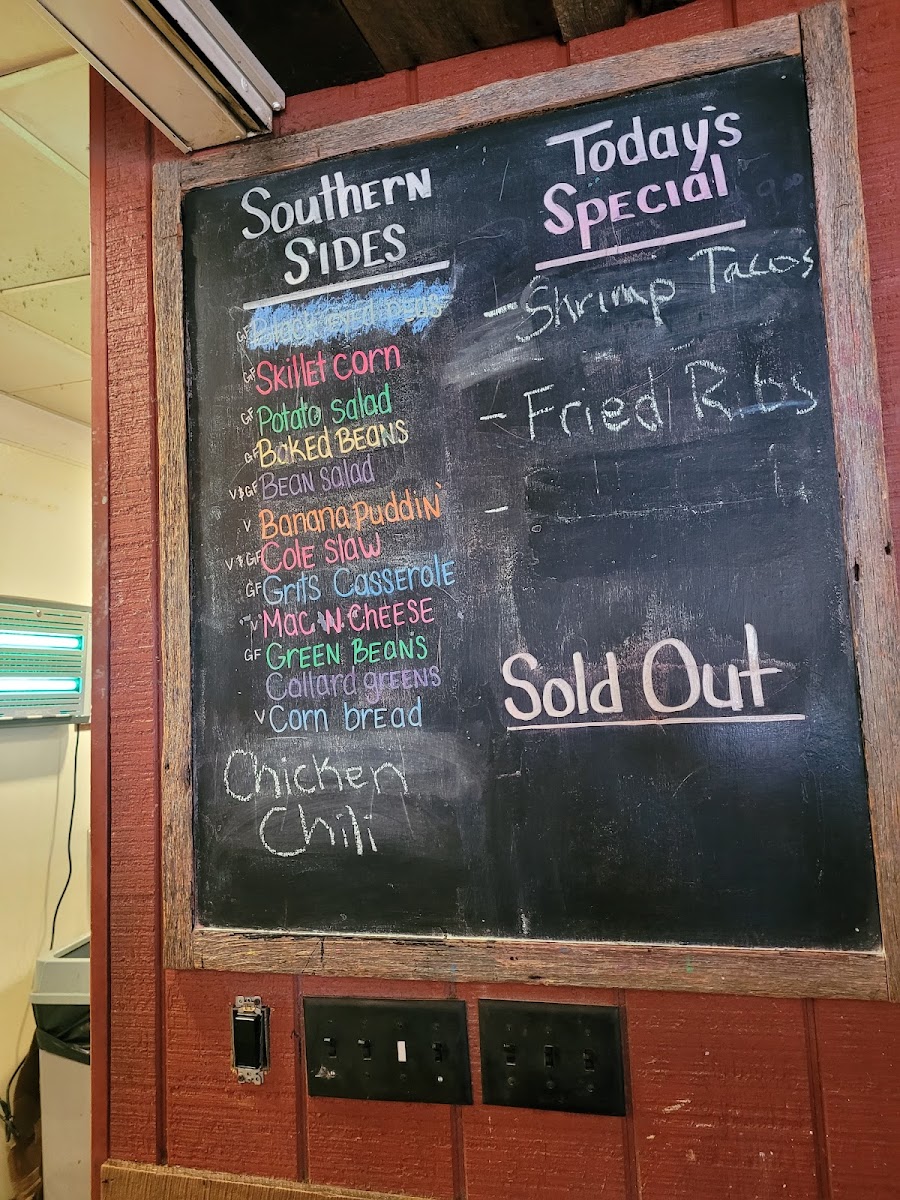 Southern
Sides
GF
GF Skillet corn
GF Potato salad
GF Baked Beans
V & GF Bean salad
V Banana Puddin'
V & GF Cole slaw
GF Grits Casserole
V Mac N Cheese
GF Green Beans
Collard greens
V Corn bread
Chicken
Chili
Today's
Special
- Shrimp Tacos
- Fried Ribs
-
Sold Out